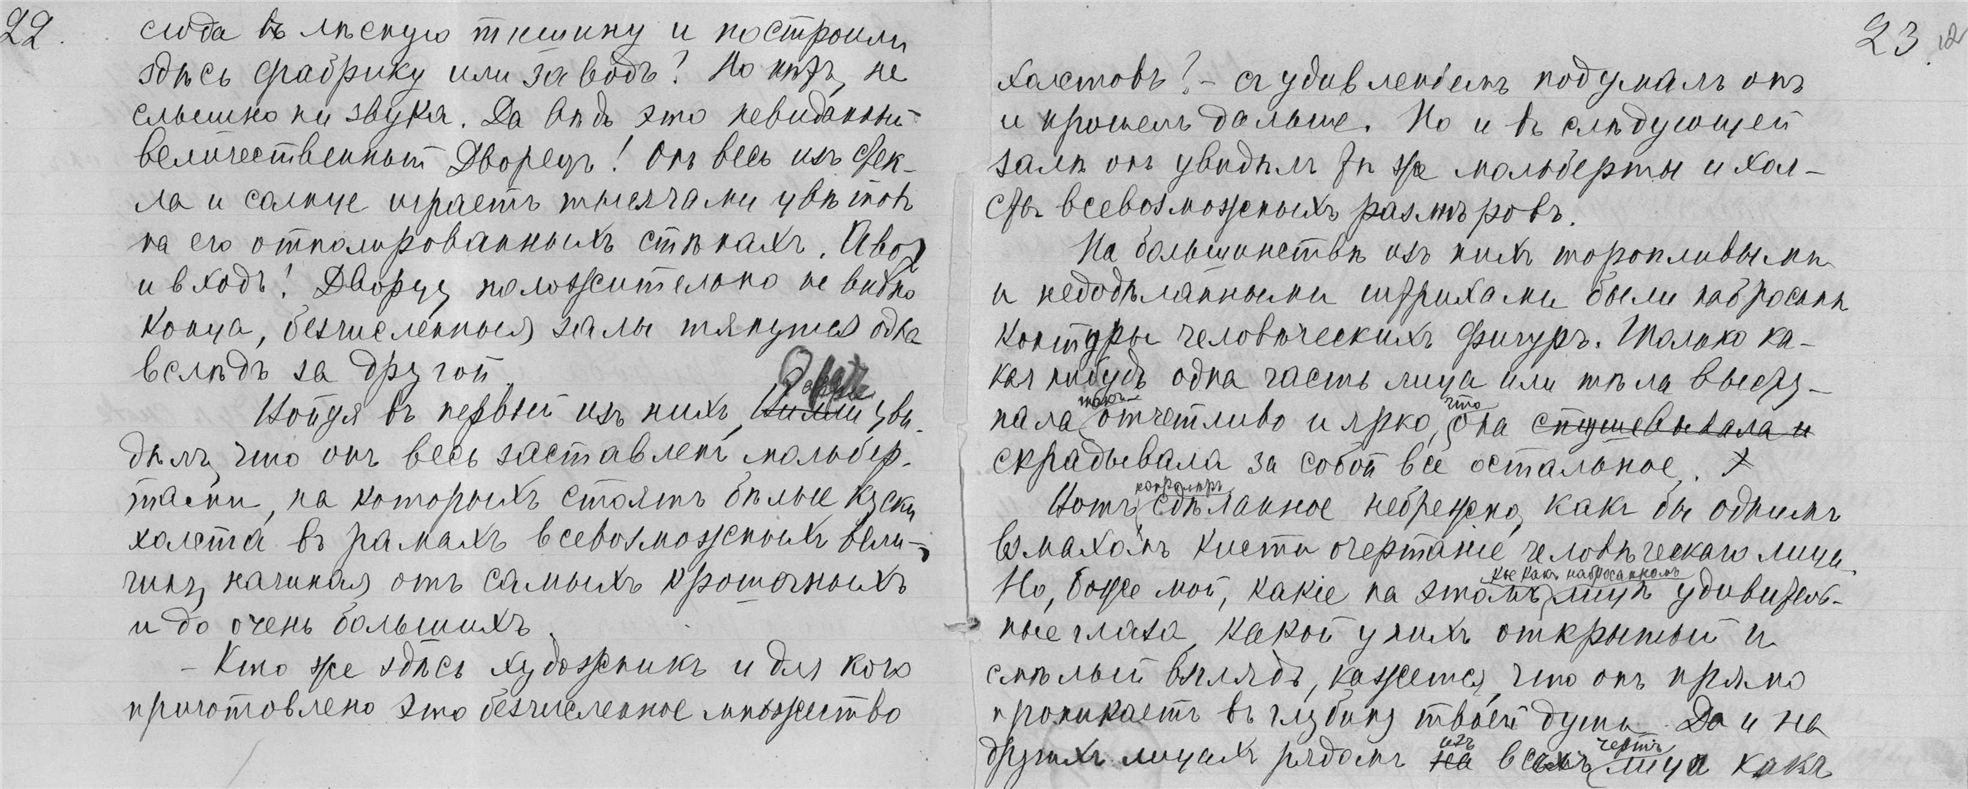 22.
сюда въ лѣсную тишину и построили
здѣсь фабрику или заводъ? Но нѣтъ, не
слышно ни звука. Да вѣдь это невиданный
величественный Дворецъ! Онъ весь изъ стек-
ла и солнце играетъ тысячами цвѣтовъ
на его отполированныхъ стѣнахъ. А вотъ
и входъ! Дворцу положительно не видно
конца, безчисленныя залы тянутся одна
вслѣдъ за другой.
Войдя въ первый изъ нихъ, уви-
дѣлъ, что онъ весь заставленъ мольбер-
тами, на которыхъ стоятъ бѣлые куски
холста въ рамахъ всевозможныхъ вели-
чинъ, начиная отъ самыхъ крошечныхъ
и до очень большихъ.
– Кто же здѣсь художникъ и для кого
приготовлено это безчисленное множество
23.
холстовъ? – съ удивленіемъ подумалъ онъ
и прошелъ дальше. Но и въ слѣдующей
залѣ онъ увидѣлъ тѣ же мольберты и хол-
сты всевозможныхъ размѣровъ.
На большинствѣ изъ нихъ торопливыми
и недодѣланными штрихами были наброшены
контуры человѣческихъ фигуръ. Только ка-
кая нибудь одна часть лица или тѣла высту-
пала такъ отчетливо и ярко, что она стушевывала и
скрадывала за собой всё остальное.
Вотъ, напримѣръ, сдѣланное небрежно, какъ бы однимъ
взмахомъ кисти очертаніе человѣческаго лица.
Но, Боже мой, какіе на этомъ кое какъ набросанномъ лицѣ удивитель-
ные глаза, какой у нихъ открытый и
смѣлый взглядъ, кажется, что онъ прямо
проникаетъ въ глубину твоей души. Да и на
другихъ лицахъ рядомъ на изъ всѣхъ чертъ лица какъ